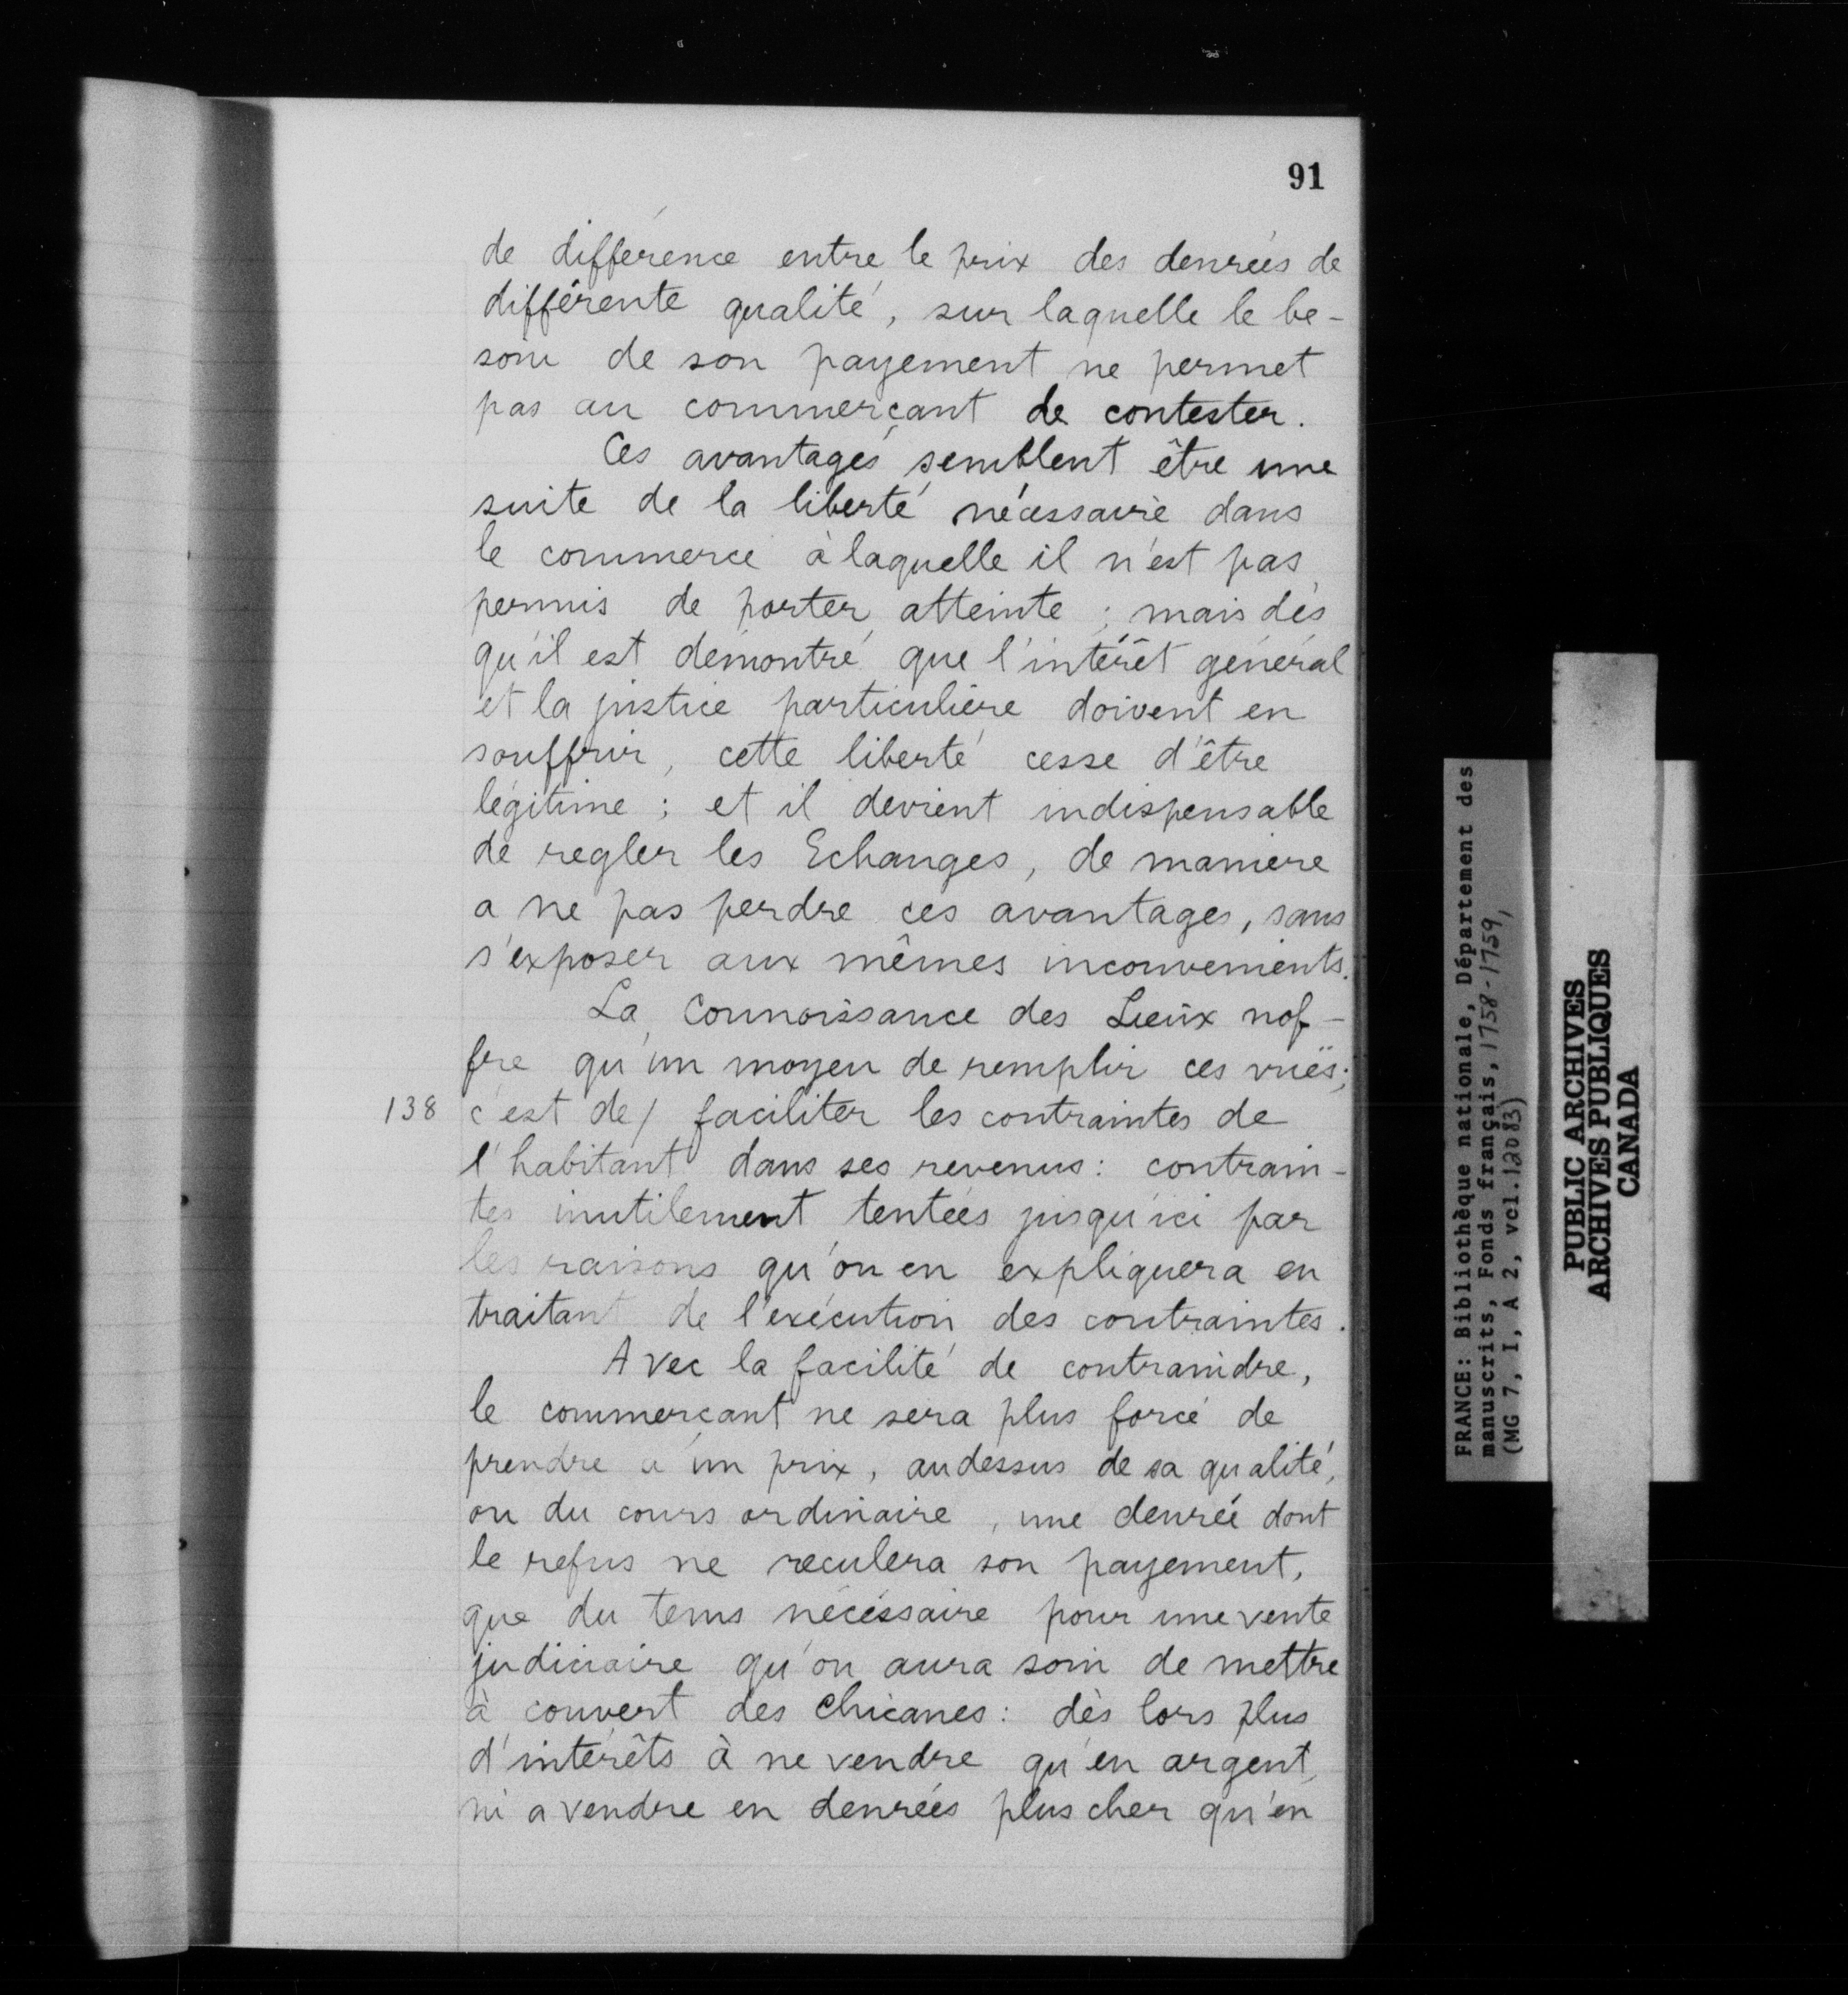 91
de différence entre le prix des denrées de
différente qualité, sur laquelle le be-
soin de son payement ne permet
pas au commerçant de contester.
Ces avantages semblent être une
suite de la liberté nécessaire dans
le commerce à laquelle il n'est pas
permis de porter atteinte ; mais dès
qu'il est démontré que l'intérêt général
et la justice particulière doivent en
souffrir, cette liberté cesse d'être
légitime ; et il devient indispensable
de regler les Echanges, de maniere
a ne pas perdre ces avantages, sans
s'exposer aux mêmes inconvenients.
La Connoissance des Lieux nof-
fre qu'un moyen de remplir ces vuës;
138 c'est de/ faciliter les contraintes de
l'habitant dans ses revenus : contrain-
tes inutilement tentées jusqu'ici par
les raisons qu'on en expliquera en
traitant de l'exécution des contraintes.
Avec la facilité de contraindre,
le commerçant ne sera plus forcé de
prendre a un prix, audessus de sa qualité,
ou du cours ordinaire, une denrée dont
le refus ne reculera son payement,
que du tems nécéssaire pour une vente
judiciaire qu'on aura soin de mettre
à couvert des chicanes : dès lors plus
d'intérêts à ne vendre qu'en argent,
ni a vendre en denrées plus cher qu'en
FRANCE: Bibliothèque nationale, Département des
manuscrits, Fonds français, 1758-1759,
(MG 7, I, A 2, vol. 12083)
PUBLIC ARCHIVES
ARCHIVES PUBLIQUES
CANADA